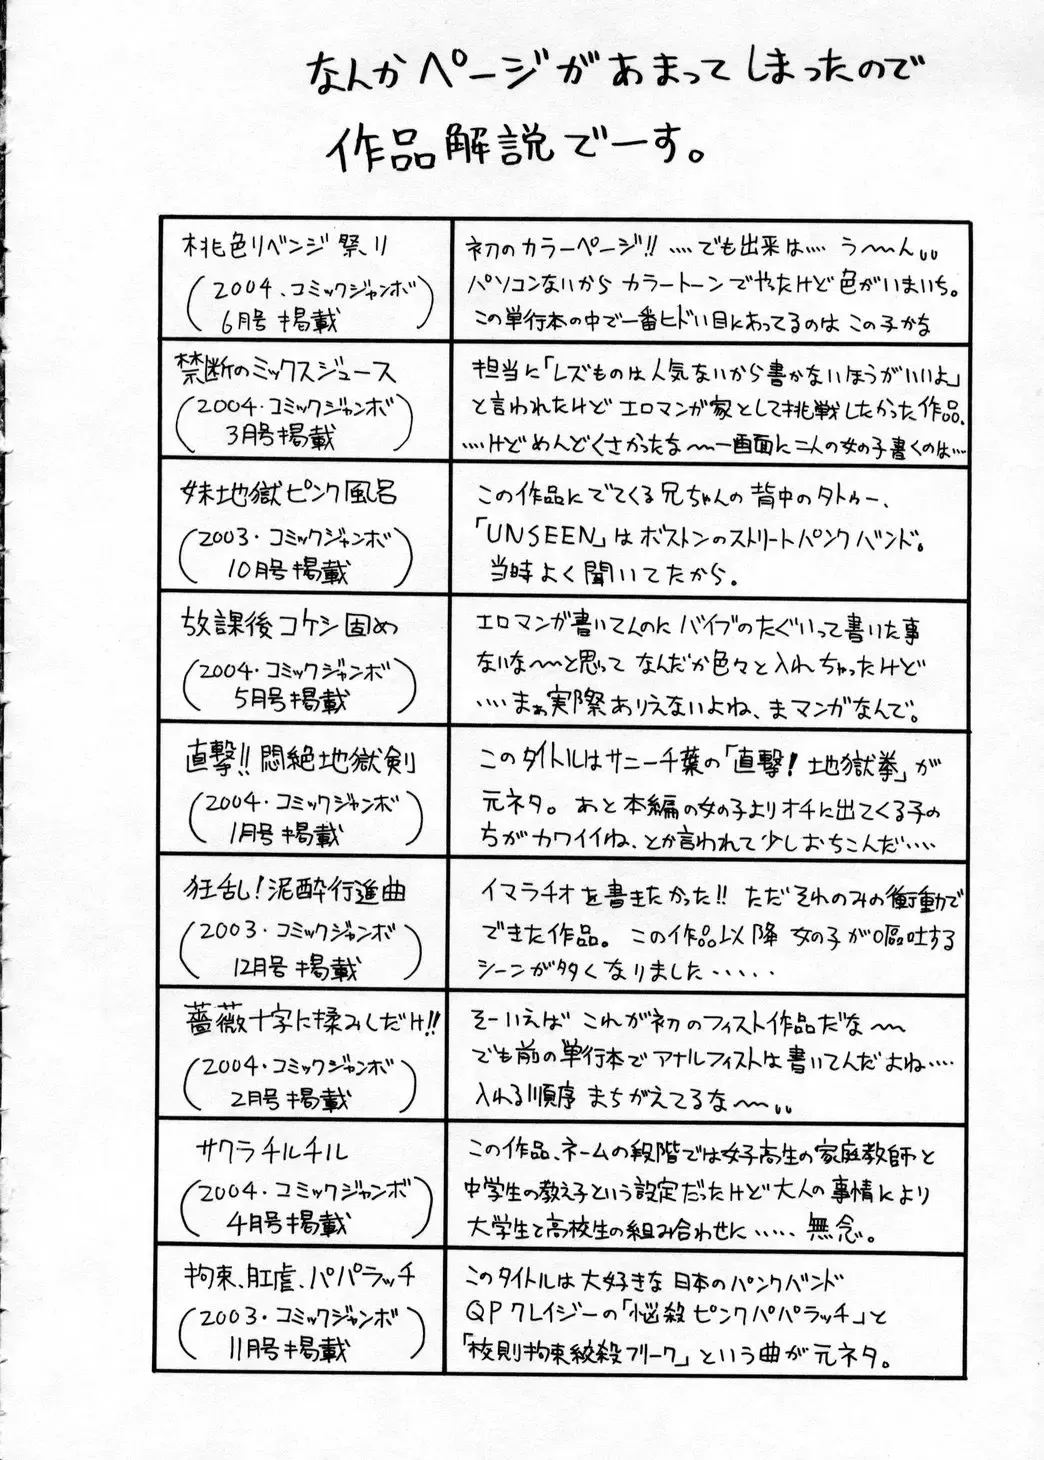 なんかページがあまってしまったので
作品解説でーす。
桃色リベンジ祭り
(2004.コミックジャンボ
6月号掲載)
初のカラーページ!!‥‥でも出来は‥‥う〜〜ん。。
パソコンないからカラートーンでやったけど色がいまいち。
この単行本の中で一番ヒドい目にあってるのはこの子かな
禁断のミックスジュース
(2004・コミックジャンボ
3月号掲載)
担当に「レズものは人気ないから書かないほうがいいよ」
と言われたけどエロマンガ家として挑戦したかった作品.
‥‥けどめんどくさかったな〜〜一画面に二人の女の子書くのは‥‥
妹地獄ピンク風呂
(2003・コミックジャンボ
10月号掲載)
この作品にでてくる兄ちゃんの背中のタトゥー、
「UNSEEN」はボストンのストリートパンクバンド。
当時よく聞いてたから.
放課後コケシ固め
(2004・コミックジャンボ
5月号掲載)
エロマンガ書いてんのにバイブのたぐいって書いた事
ないな〜〜と思ってなんだか色々と入れちゃったけど
‥‥まぁ実際ありえないよね、まマンガなんで。
直撃!!悶絶地獄剣
(2004・コミックジャンボ
1月号掲載)
このタイトルはサニー千葉の「直撃!地獄拳」が
元ネタ。あと本編の女の子よりオチに出てくる子の
ちがカワイイね、とか言われて少しおちこんだ‥‥
狂乱!泥酔行進曲
(2003・コミックジャンボ
12月号掲載)
イマラチオを書きたかった!!ただそれのみの衝動で
できた作品。この作品以降女の子が嘔吐する
シーンが多くなりました‥‥‥
薔薇十字に揉みしだけ!!
(2004・コミックジャンボ
2月号掲載)
そーいえばこれが初のフィスト作品だな〜〜
でも前の単行本でアナルフィストは書いてんだよね‥‥
入れる順序まちがえてるな〜〜。。
サクラチルチル
(2004・コミックジャンボ
4月号掲載)
この作品、ネームの段階では女子高生の家庭教師と
中学生の教え子という設定だったけど大人の事情により
大学生と高校生の組み合わせに‥‥‥無念。
拘束、肛虐、パパラッチ
(2003・コミックジャンボ
11月号掲載)
このタイトルは大好きな日本のパンクバンド
QPクレイジーの「悩殺ピンクパパラッチ」と
「校則拘束絞殺フリーク」という曲が元ネタ。